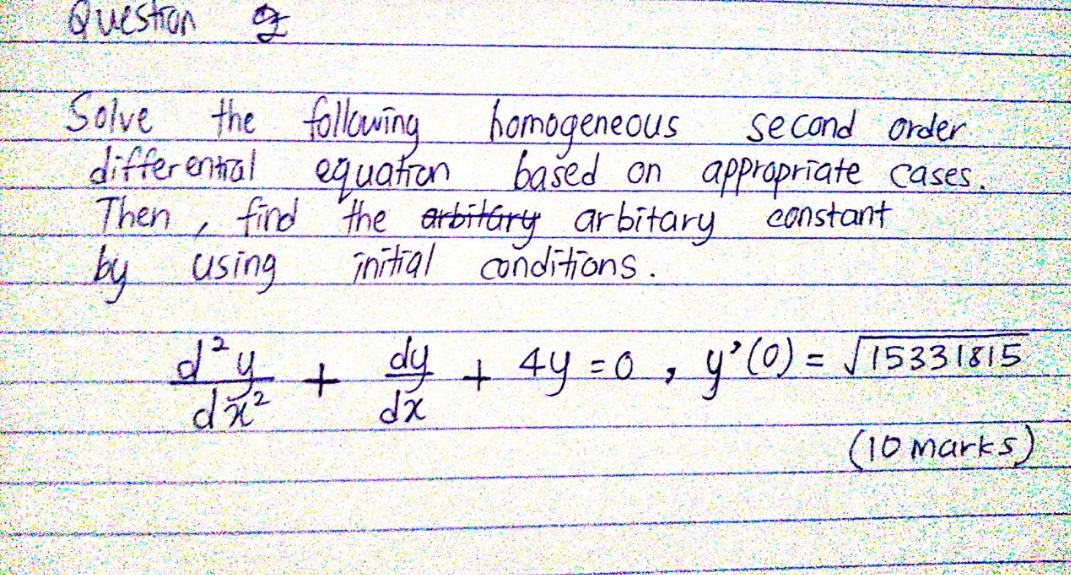 Question 2
Solve the following homogeneous second order
differential equation based on appropriate cases.
Then, find the arbitary arbitary constant
by using initial conditions.
d²y/dx² + dy/dx + 4y = 0, y'(0) = √15331815
(10 marks)